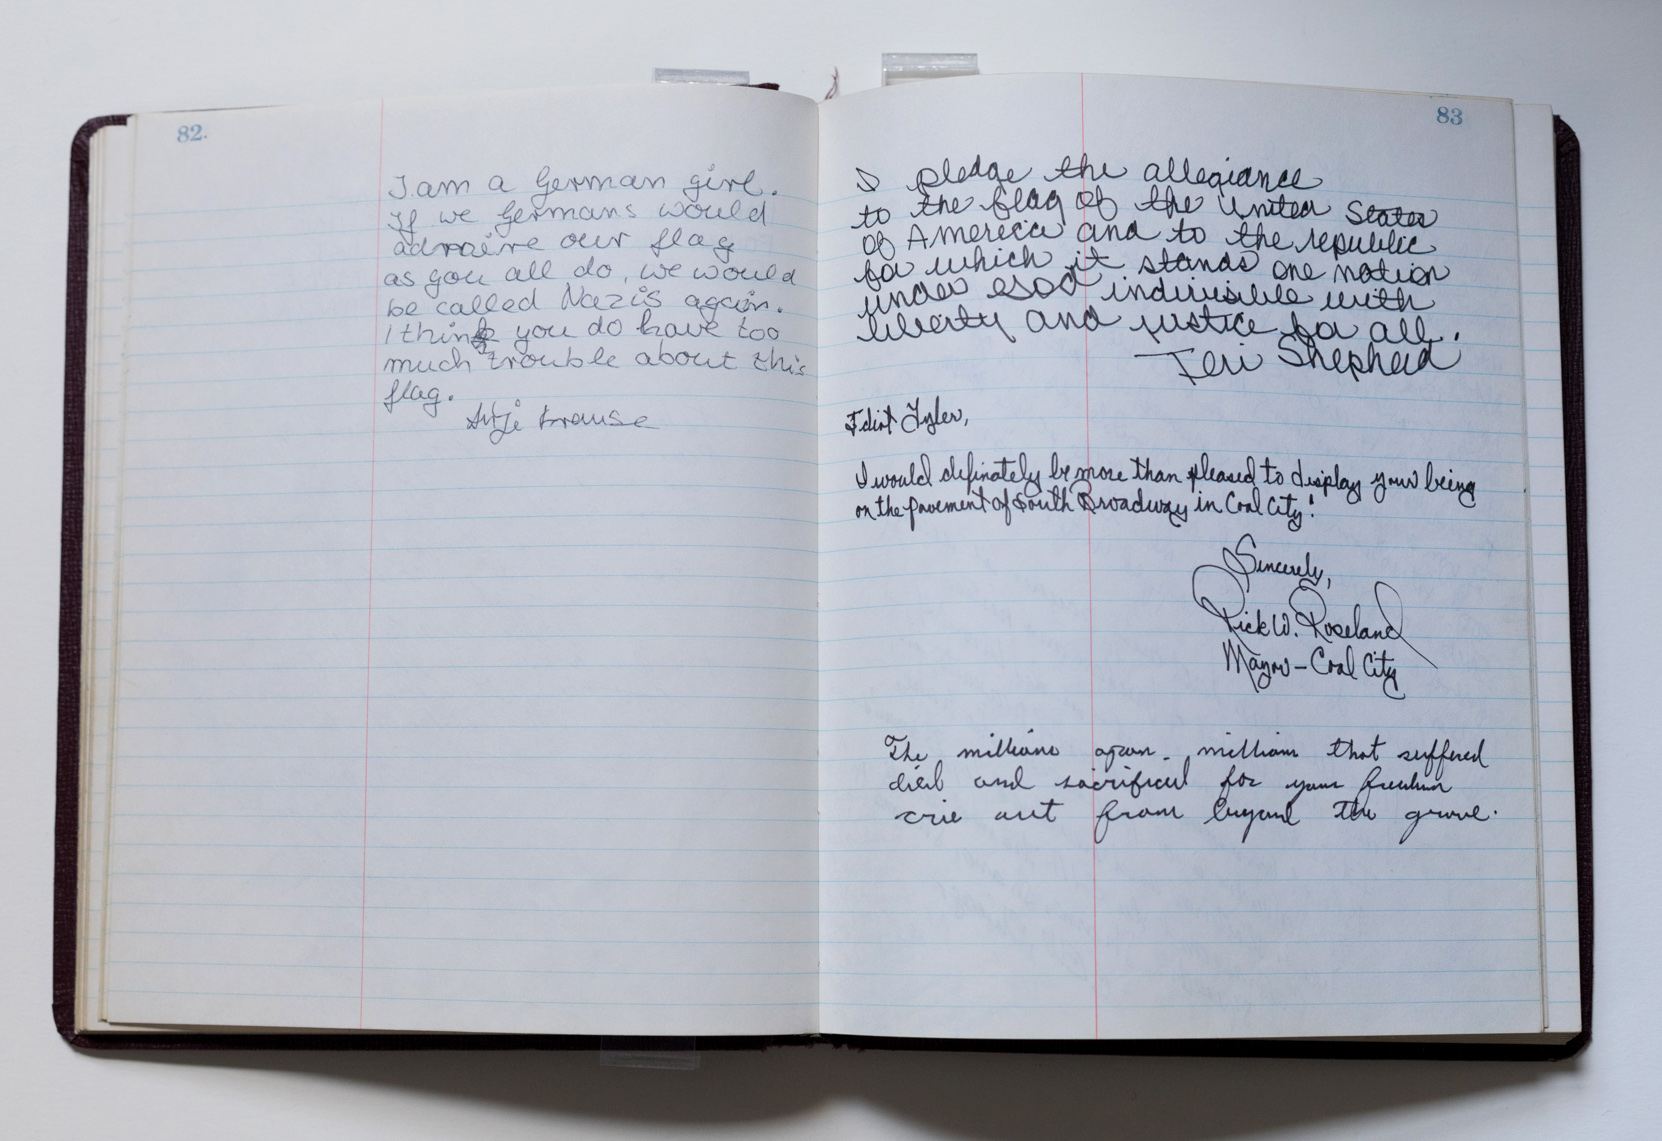 82.
I am a German girl.
If we Germans would
admire our flag
as you all do, we would
be called Nazis again.
I think you do have too
much trouble about this
flag.
Krause
83
I pledge the allegiance
to the flag of the United States
of America and to the republic
for which it stands one nation
under God indivisible with
liberty and justice for all.
Teri Shepherd
Tyler,
I would definately be more than pleased to display your being
on the pavement of South Broadway in Coal City!
Sincerely,
Rick W. Roseland
Mayor – Coal City
The millions upon million that suffered
died and sacrificed for your freedom
crie out from beyond the grave.